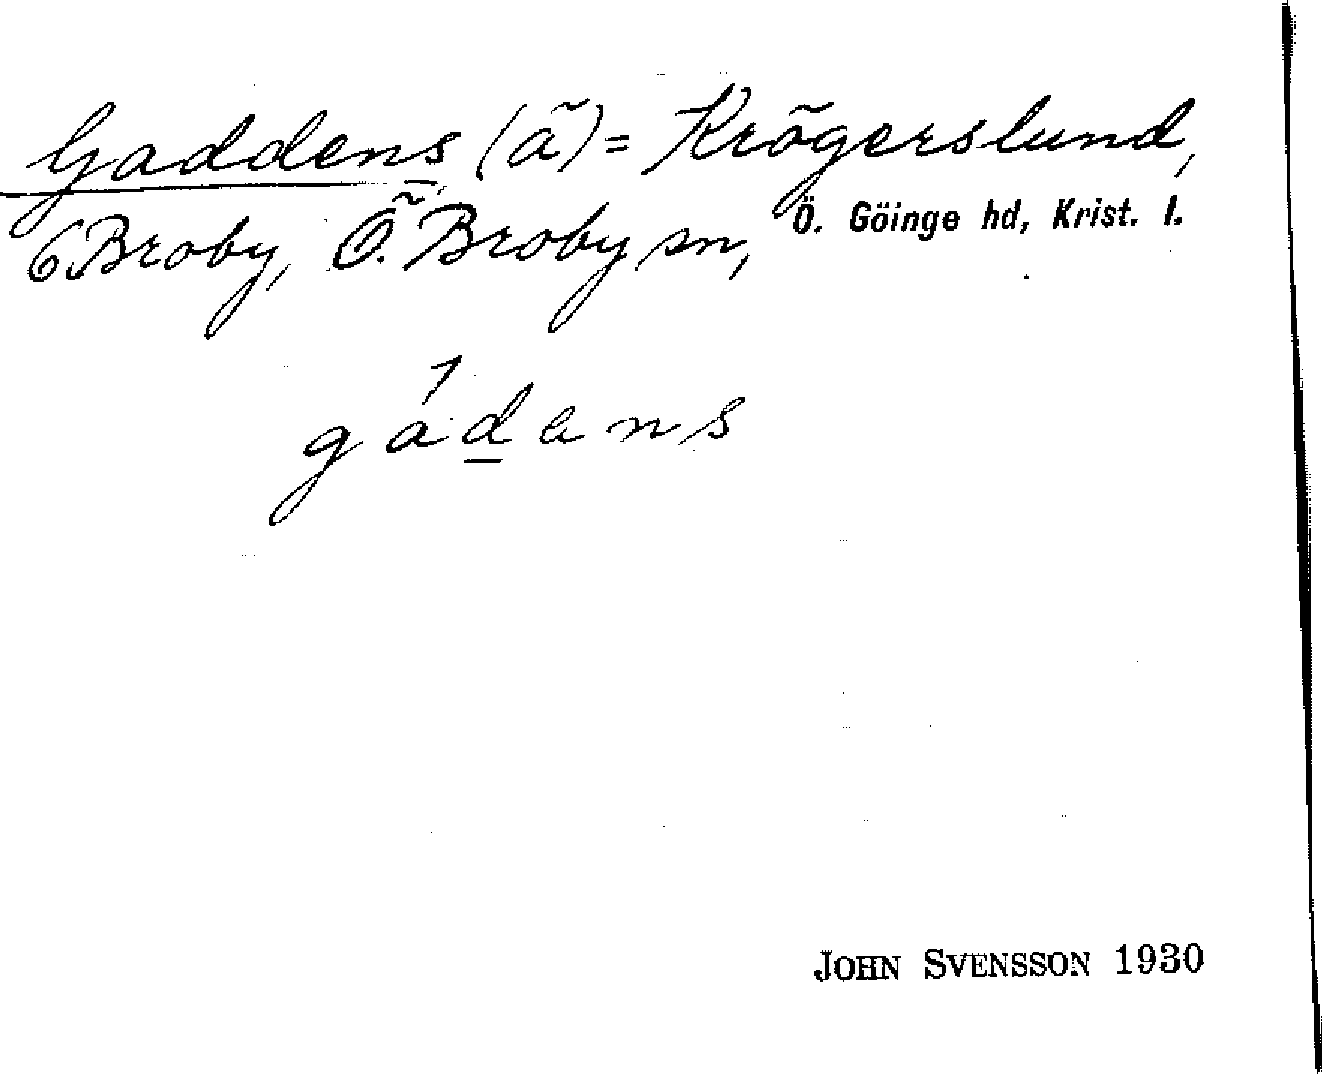 Gaddens (ã) = Krõgerslund,
6 Broby, Õ. Broby sn, Ö. Göinge hd, Krist. l.
gádans
JOHN SVENSSON 1930